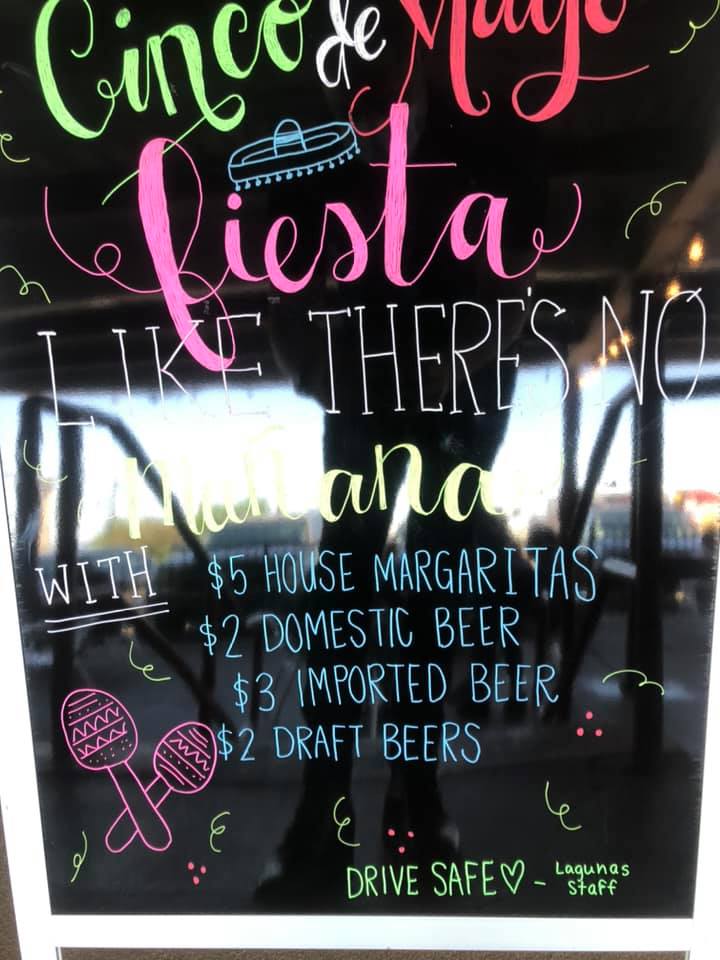 Cinco de Mayo
fiesta
LIKE THERE'S NO
mañana
WITH $5 HOUSE MARGARITAS
$2 DOMESTIC BEER
$3 IMPORTED BEER
$2 DRAFT BEERS
DRIVE SAFE♡ - Lagunas
Staff